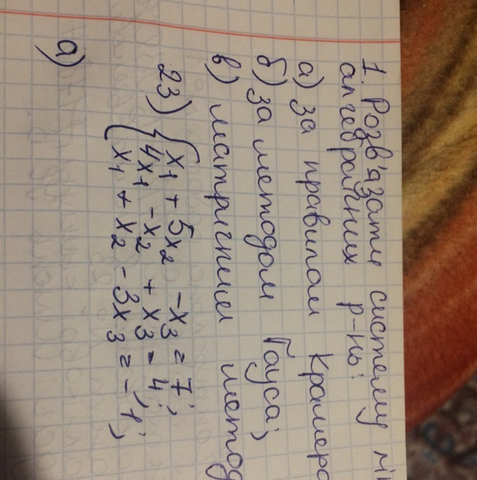 1. Розв'язати систему
алгебраїчних р-нь:
а) за правилом Крамера
б) за методом Гауса;
в) матричним метод
23) { x₁ + 5x₂ - x₃ = 7;
4x₁ - x₂ + x₃ = 4;
x₁ + x₂ - 3x₃ = -1;
а)